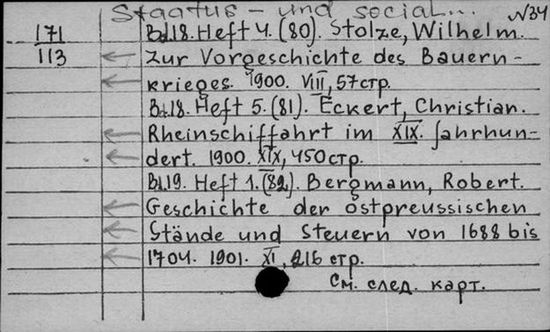 Staatus - und social... N34
171
113
Bd.18. Heft 4. (80). Stolze, Wilhelm.
Zur Vorgeschichte des Bauern-
krieges. 1900. VIII, 57 стр.
Bd.18. Heft 5. (81). Eckert, Christian.
Rheinschiffahrt im XIX. Jahrhun-
dert. 1900. XIX, 450 стр.
Bd.19. Heft 1. (82). Bergmann, Robert.
Geschichte der ostpreussischen
Stände und Steuern von 1688 bis
1704. 1901. XI, 216 стр.
См. след. карт.